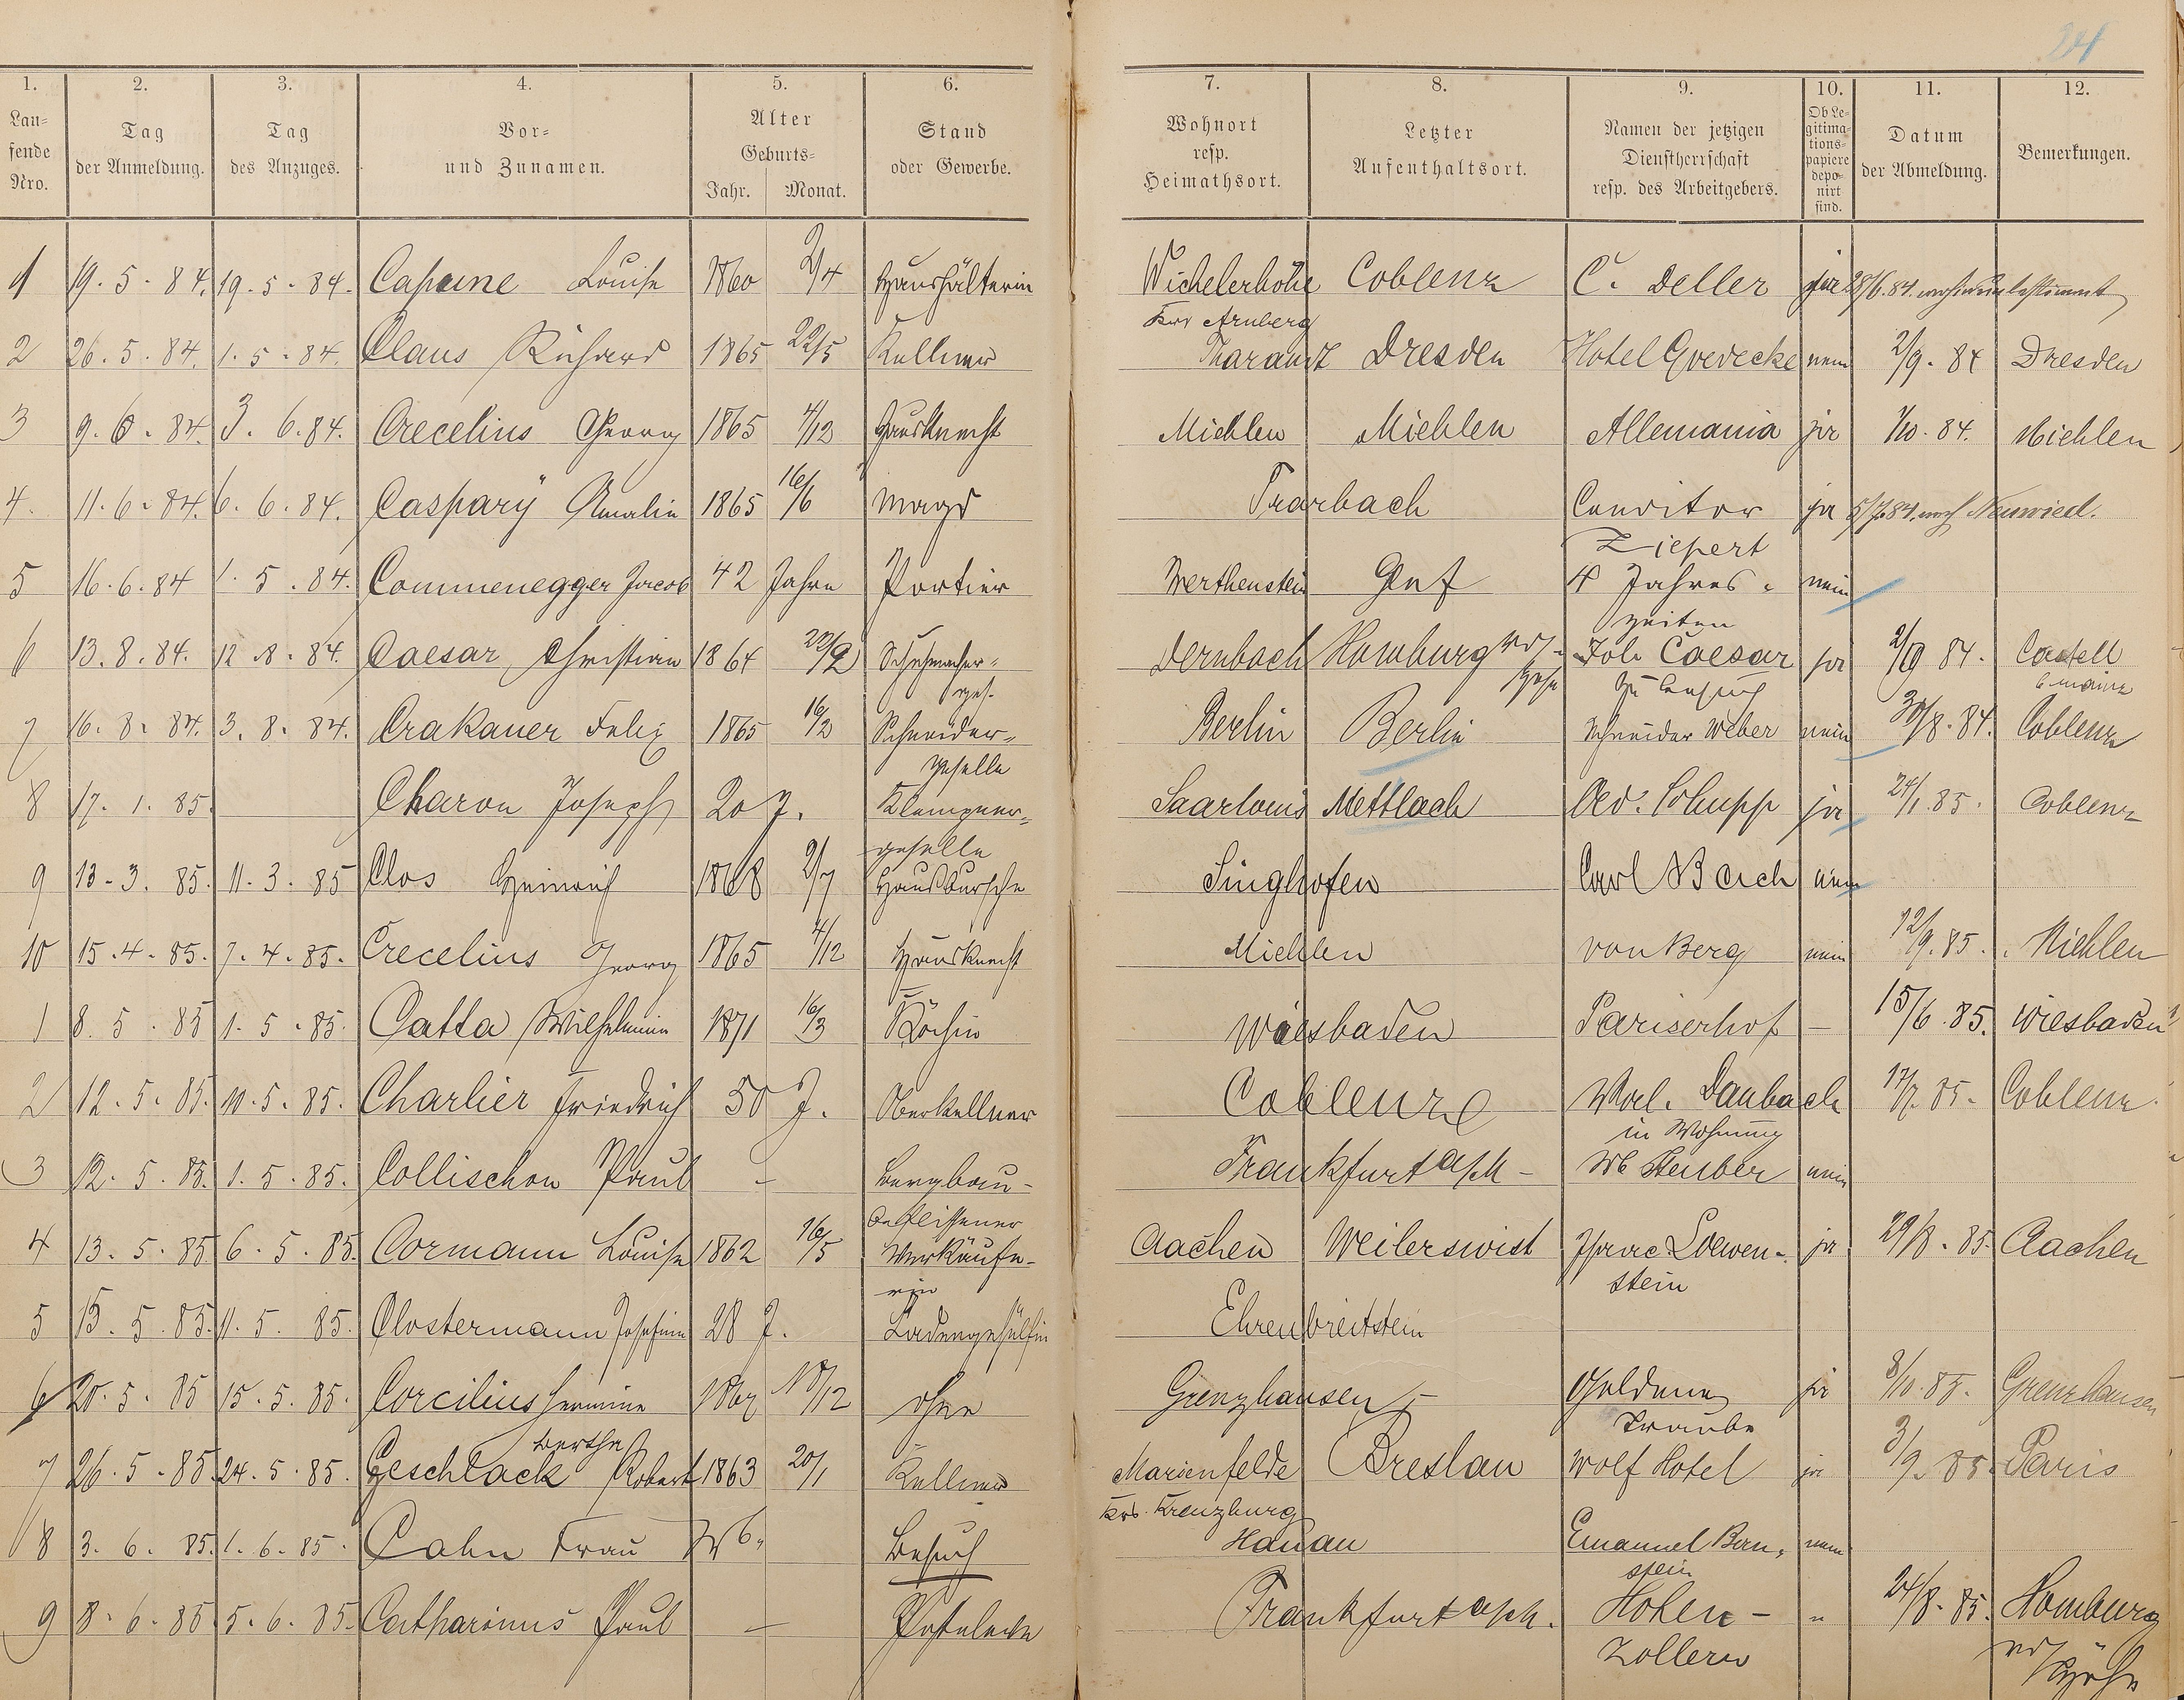 24
1. 2. 3. 4. 5. 6. 7. 8. 9. 10. 11. 12.
Lau=
fende
Nro.
Tag
der Anmeldung.
Tag
des Anzuges.
Vor=
und Zunamen.
Alter
Geburts=
Jahr. Monat.
Stand
oder Gewerbe.
Wohnort
resp.
Heimathsort.
Letzter
Aufenthaltsort.
Namen der jetzigen
Dienstherrschaft
resp. des Arbeitgebers.
Ob Le=
gitima=
tions=
papiere
depo=
nirt
sind.
Datum
der Abmeldung.
Bemerkungen.
1 19. 5. 84. 19. 5. 84. Louise 1860 2/4 Haushälterin Wichelerhöhe Coblenz C. Deller ja 28/6. 84. unbestimmt
Krs Arnberg
2 26. 5. 84. 1. 5. 84. Claus Richard 1865 22/5 Kellner Tharandt Dresden Hotel Goedecke nein 2/9. 84 Dresden
3 9. 6. 84. 3. 6. 84. Crecelius Georg 1865 4/12 Hausknecht Miehlen Miehlen Allemania ja 1/10. 84. Miehlen
4. 11. 6. 84. 6. 6. 84. Caspary Amalie 1865 16/6 Magd Trarbach Conditor ja 5/7. 84. nach Neuwied.
Ziepert
5 16. 6. 84 1. 5. 84. Commenegger Jacob 42 Jahre Portier Werthenstein Genf 4 Jahres= nein
zeiten
6 13. 8. 84. 12. 8. 84. Caesar Christian 1864 22/2 Schuhmacher= Dernbach Homburg v. d. Joh Caesar ja 2/9 84. Castell
ges. Höhe zu Besuch b. Mainz
7 16. 8. 84. 3. 8. 84. Crakauer Felix 1865 16/2 Schneider= Berlin Berlin Schneider Weber nein 30/8. 84. Coblenz
geselle
8 17. 1. 85. Charon Joseph 20 J. Klempner= Saarlouis Mettlach Ad. Schupp ja 24/1. 85. Coblenz
geselle
9 13. 3. 85. 11. 3. 85 Clos Heinrich 1868 2/7 Hausbursche Singhofen Carl Bach nein
10 15. 4. 85. 7. 4. 85. Crecelius Georg 1865 4/12 Hausknecht Miehlen von Berg nein 12/9. 85. Miehlen
1 8. 5. 85 1. 5. 85. Catta Wilhelmine 1871 16/3 Köchin Wiesbaden Pariserhof – 15/6. 85. Wiesbaden
2 12. 5. 85. 10. 5. 85. Charlier Friedrich 50 J. Oberkellner Coblenz Daubach 17/7. 85. Coblenz.
in Wohnung
3 12. 5. 85. 1. 5. 85. Collischon Paul – Bergbau- Frankfurt a/M – Wb Steuber nein
Beflissener
4 13. 5. 85 6. 5. 85. Cormann Louise 1862 16/5 Verkäufe- Aachen Weilerswist Isaac Loewen- ja 29/8. 85. Aachen
rin stein
5 15. 5. 85. 11. 5. 85. Clostermann Josefine 28 J. Ladengehülfin Ehrenbreitstein
6 20. 5. 85 15. 5. 85. Corcilius Hermine 1867 18/12 ohne Grenzhausen – Goldene ja 8/10. 85. Grenzhausen
Bertha Traube
7 26. 5. 85. 24. 5. 85. Geschlack Robert 1863 20/1 Kellner Marienfelde Breslau Wolf Hotel ja 3/9. 85 Paris
Krs. Kreuzburg
8 3. 6. 85. 1. 6. 85. Cahn Frau Wb. Besuch Hanau Emanuel Born= nein
stein
9 8. 6. 85 5. 6. 85. Catharinus Paul – Posteleve Frankfurt a/M. Hohen- " 24/8. 85. Homburg
zollern v d Höhe